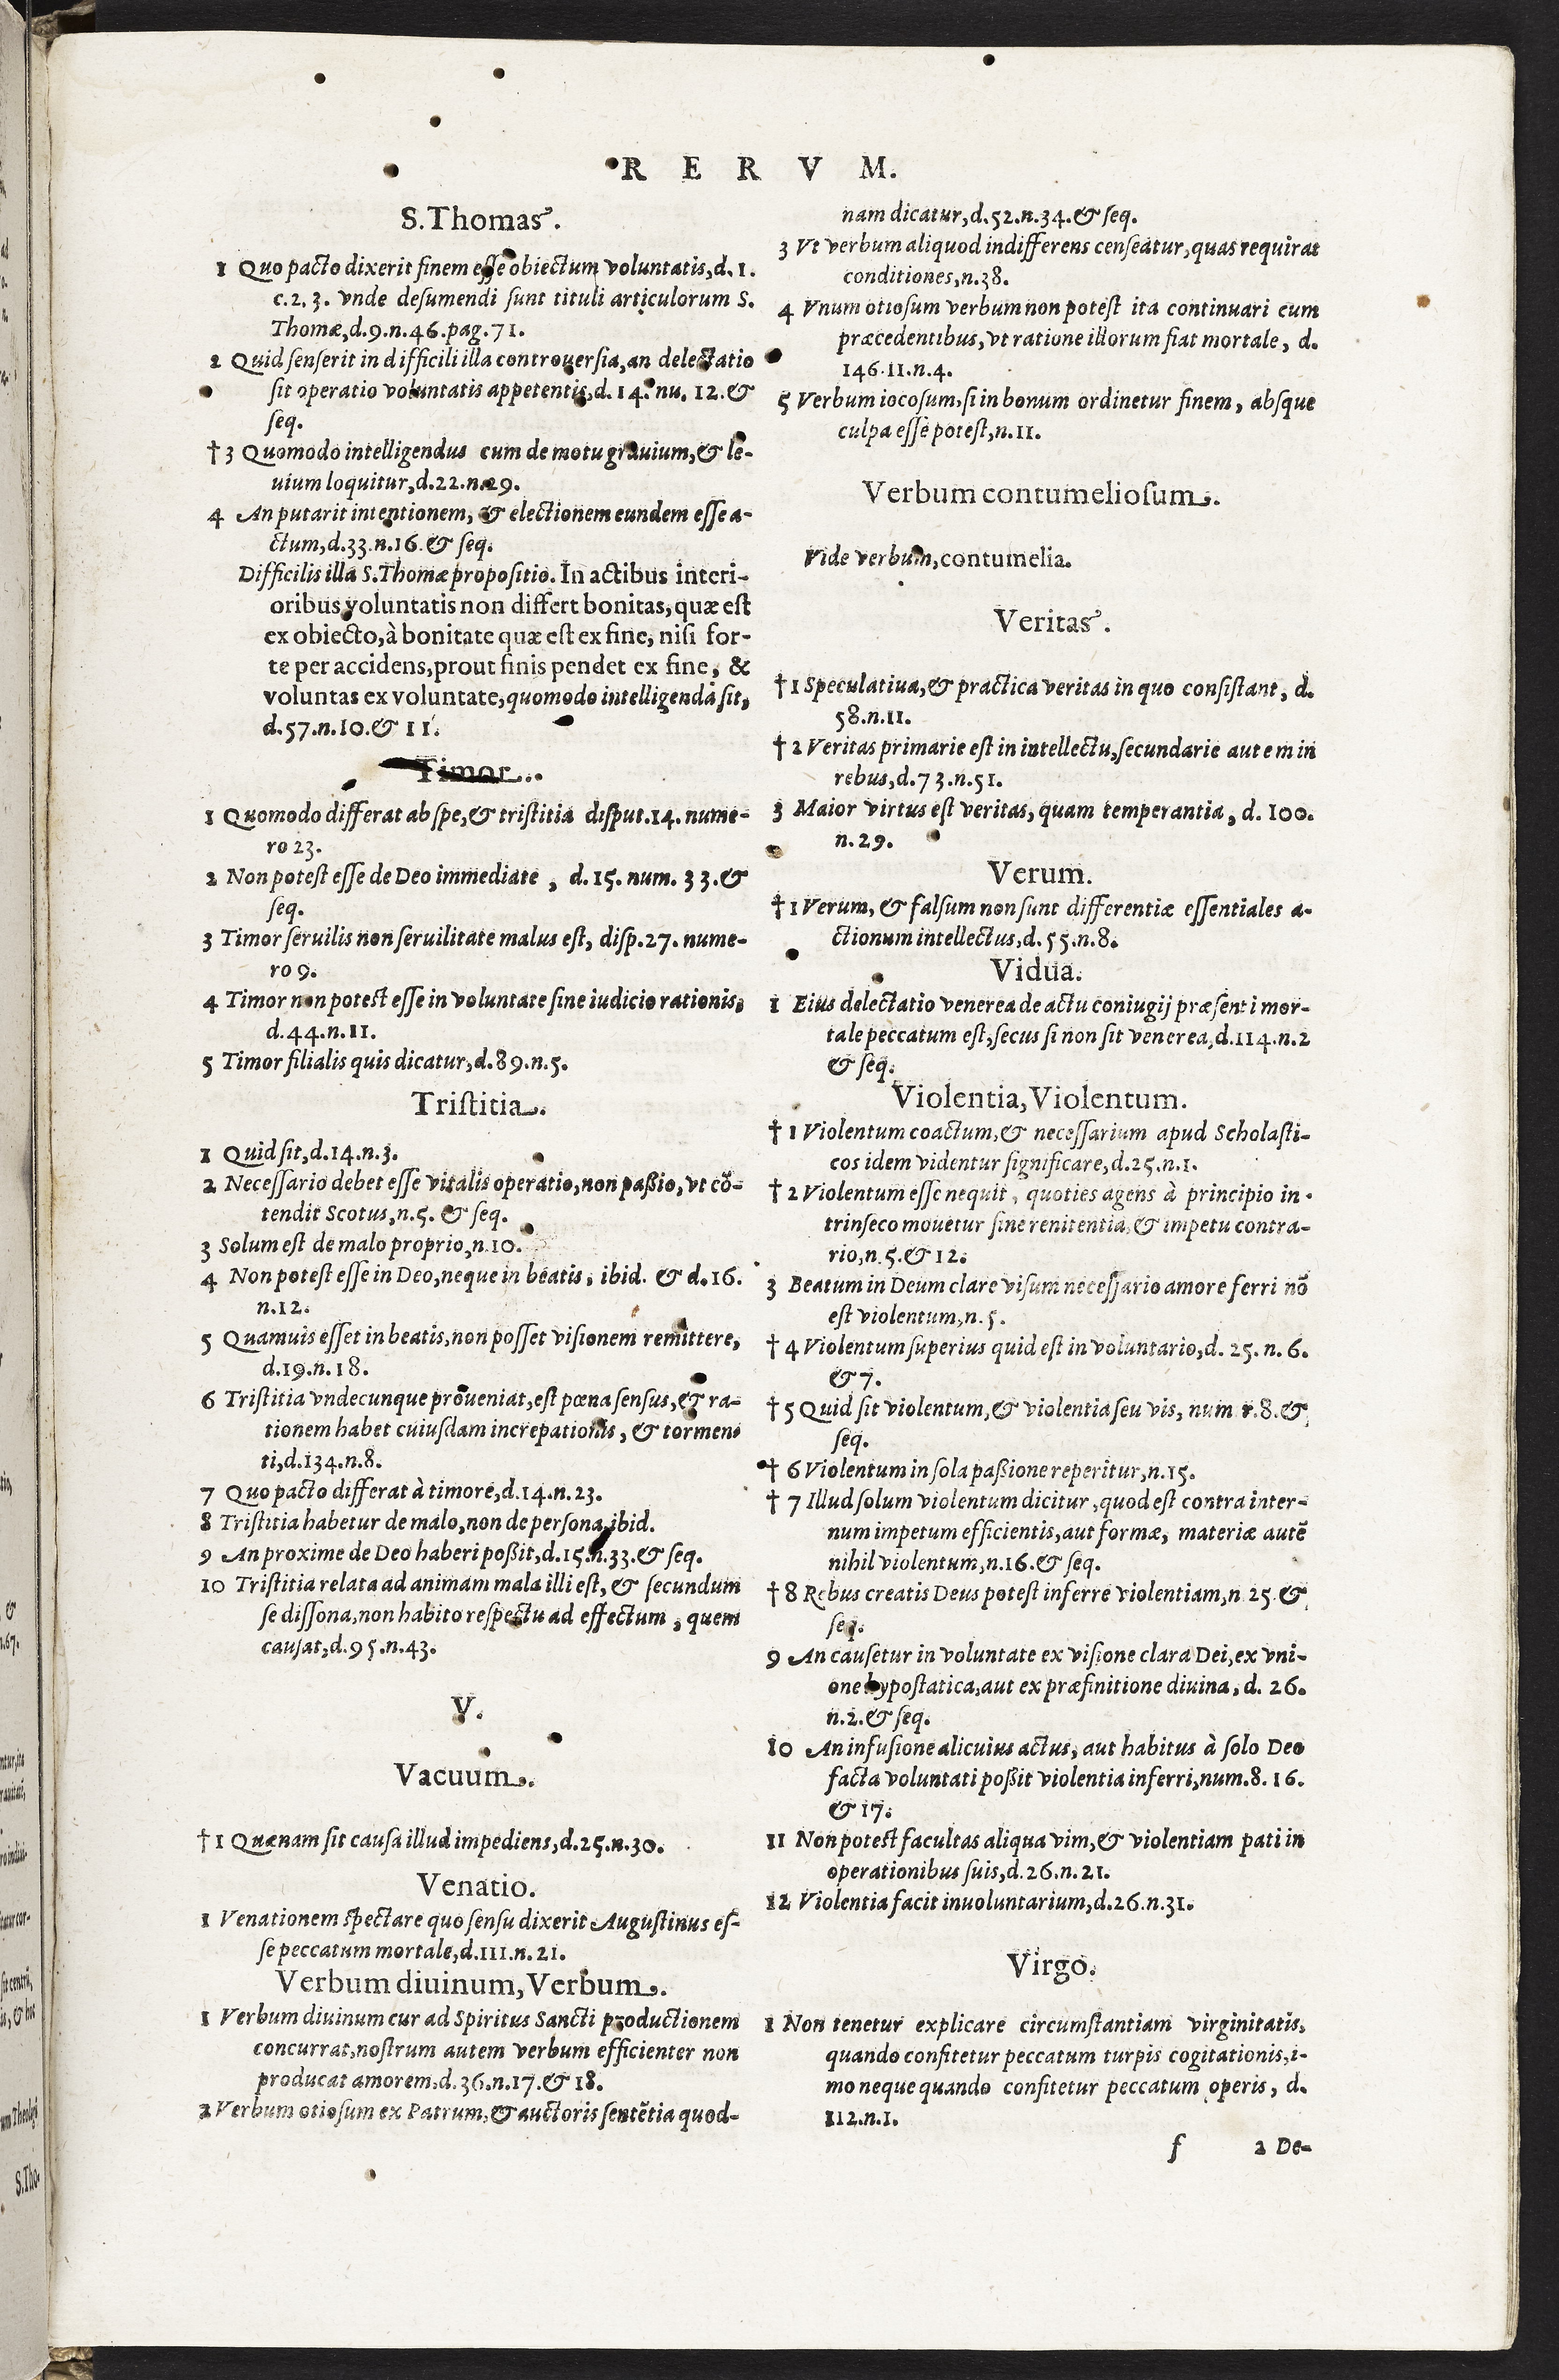 RERVM.
S. Thomas.
1 Quo pacto dixerit finem esse obiectum voluntatis, d. 1.
c. 2. 3. vnde desumendi sunt tituli articulorum S.
Thomæ, d. 9. n. 46. pag. 71.
2 Quid senserit in difficili illa controuersia, an delectatio
sit operatio voluntatis appetentis, d. 14. nu. 12. &
seq.
†3 Quomodo intelligendus cum de motu grauium, & le-
uium loquitur, d. 22. n. 29.
4 An putarit intentionem, & electionem eundem esse a-
ctum, d. 33. n. 16. & seq.
Difficilis illa S. Thomæ propositio. In actibus interi-
oribus voluntatis non differt bonitas, quæ est
ex obiecto, à bonitate quæ est ex fine, nisi for-
te per accidens, prout finis pendet ex fine, &
voluntas ex voluntate, quomodo intelligenda sit,
d. 57. n. 10. & 11.
Timor.
1 Quomodo differat ab spe, & tristitia disput. 14. nume-
ro 23.
2 Non potest esse de Deo immediate, d. 15. num. 33. &
seq.
3 Timor seruilis non seruilitate malus est, disp. 27. nume-
ro 9.
4 Timor non potest esse in voluntate sine iudicio rationis,
d. 44. n. 11.
5 Timor filialis quis dicatur, d. 89. n. 5.
Tristitia.
1 Quid sit, d. 14. n. 3.
2 Necessario debet esse vitalis operatio, non passio, vt cõ-
tendit Scotus, n. 5. & seq.
3 Solum est de malo proprio, n. 10.
4 Non potest esse in Deo, neque in beatis, ibid. & d. 16.
n. 12.
5 Quamuis esset in beatis, non posset visionem remittere,
d. 19. n. 18.
6 Tristitia vndecunque proueniat, est pœna sensus, & ra-
tionem habet cuiusdam increpationis, & tormen-
ti, d. 134. n. 8.
7 Quo pacto differat à timore, d. 14. n. 23.
8 Tristitia habetur de malo, non de persona, ibid.
9 An proxime de Deo haberi possit, d. 15. n. 33. & seq.
10 Tristitia relata ad animam mala illi est, & secundum
se dissona, non habito respectu ad effectum, quem
causat, d. 95. n. 43.
V.
Vacuum.
†1 Quænam sit causa illud impediens, d. 25. n. 30.
Venatio.
1 Venationem spectare quo sensu dixerit Augustinus es-
se peccatum mortale, d. 111. n. 21.
Verbum diuinum, Verbum.
1 Verbum diuinum cur ad Spiritus Sancti productionem
concurrat, nostrum autem verbum efficienter non
producat amorem, d. 36. n. 17. & 18.
2 Verbum otiosum ex Patrum, & auctoris sentẽtia quod-
nam dicatur, d. 52. n. 34. & seq.
3 Vt verbum aliquod indifferens censeatur, quas requirat
conditiones, n. 38.
4 Vnum otiosum verbum non potest ita continuari cum
præcedentibus, vt ratione illorum fiat mortale, d.
146. 11. n. 4.
5 Verbum iocosum, si in bonum ordinetur finem, absque
culpa esse potest, n. 11.
Verbum contumeliosum.
Vide verbum, contumelia.
Veritas.
†1 Speculatiua, & practica veritas in quo consistant, d.
58. n. 11.
†2 Veritas primarie est in intellectu, secundarie autem in
rebus, d. 73. n. 51.
3 Maior virtus est veritas, quam temperantia, d. 100.
n. 29.
Verum.
†1 Verum, & falsum non sunt differentiæ essentiales a-
ctionum intellectus, d. 55. n. 8.
Vidua.
1 Eius delectatio venerea de actu coniugij præsenti mor-
tale peccatum est, secus si non sit venerea, d. 114. n. 2
& seq.
Violentia, Violentum.
†1 Violentum coactum, & necessarium apud Scholasti-
cos idem videntur significare, d. 25. n. 1.
†2 Violentum esse nequit, quoties agens à principio in-
trinseco mouetur sine renitentia, & impetu contra-
rio, n. 5. & 12.
3 Beatum in Deum clare visum necessario amore ferri nõ
est violentum, n. 5.
†4 Violentum superius quid est in voluntario, d. 25. n. 6.
& 7.
†5 Quid sit violentum, & violentia seu vis, num r. 8. &
seq.
†6 Violentum in sola passione reperitur, n. 15.
†7 Illud solum violentum dicitur, quod est contra inter-
num impetum efficientis, aut formæ, materiæ autẽ
nihil violentum, n. 16. & seq.
†8 Rebus creatis Deus potest inferre violentiam, n 25. &
seq.
9 An causetur in voluntate ex visione clara Dei, ex vni-
one hypostatica, aut ex præfinitione diuina, d. 26.
n. 2. & seq.
10 An infusione alicuius actus, aut habitus à solo Deo
facta voluntati possit violentia inferri, num. 8. 16.
& 17.
11 Non potest facultas aliqua vim, & violentiam pati in
operationibus suis, d. 26. n. 21.
12 Violentia facit inuoluntarium, d. 26. n. 31.
Virgo.
1 Non tenetur explicare circumstantiam virginitatis,
quando confitetur peccatum turpis cogitationis, i-
mo neque quando confitetur peccatum operis, d.
112. n. 1.
f 2 De-